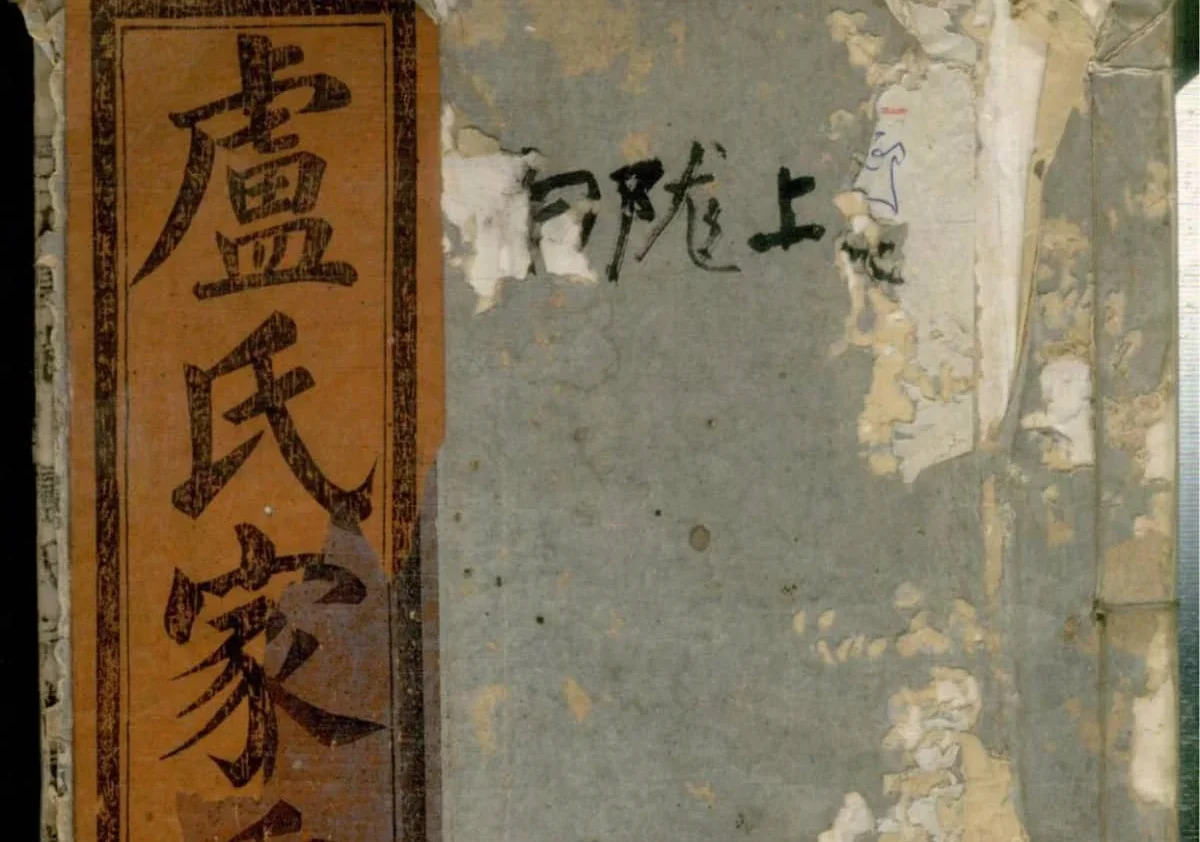 盧氏家
陇上